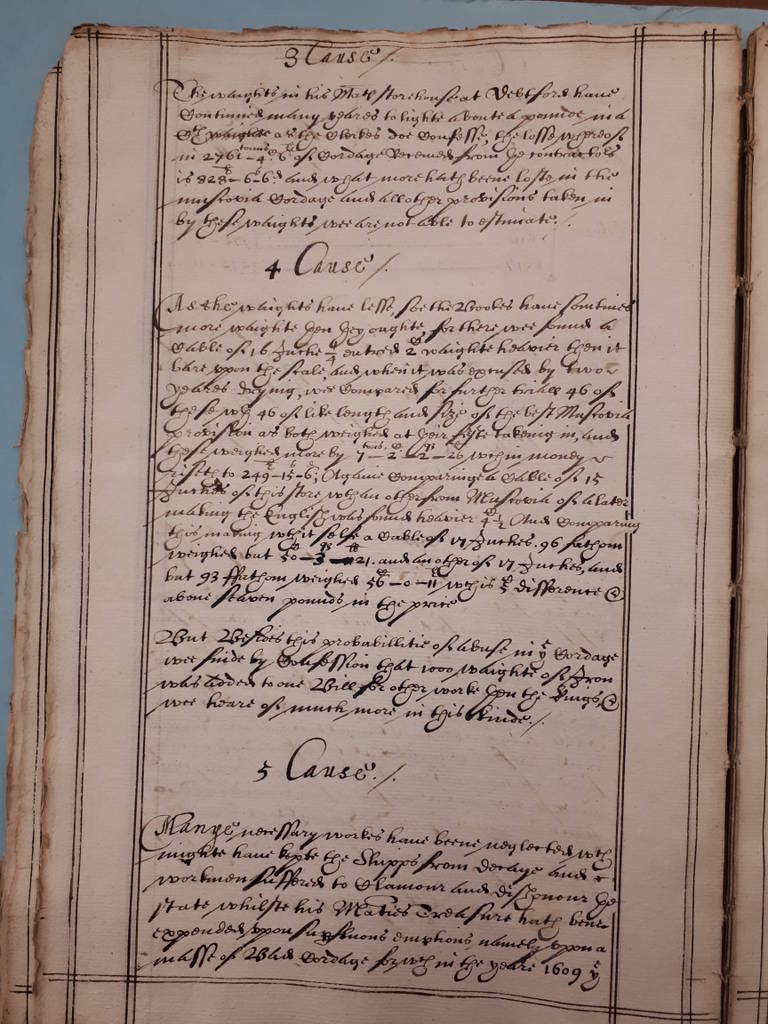 3 Cause /.
The waights in his Mats storehouse at Debtford have
Continued many yeares to light aboute a pounde in a
Ct waighte as the Clerkes doe Confesse, the losse whereof
in 2761 tonns - 4 - 6 of Cordage Received from ye contractors
is 828li - 6s - 6d and what more hath beene loste in the
muscovia Cordage and all other provisions taken in
by these waights wee are not able to estimate /.
4 Cause /.
As the waights have lesse, soe the Bookes have somtimes
more waighte then they oughte, for there wee found a
Cable of 16 Inche 1/4 entred 2C waighte heavier then it
bare upon the scale, and when it was excused by two
yeares drying, wee Compared for further triall 46 of
these wth 46 of like length and size of the best Muscovia
provision as both weighed at their firste takeing in, and
these weighed more by 7 - 2 - 2 - 26 wch in money
riseth to 249 - 15 - 6; Againe Comparinge a Cable of 15
Inches of this store wth an other from Muscovia of a later
making the English was found heavier 4C 1/2 And Comparing
this making wth it selfe a Cable of 17 Inches. 96 fathom
weighed but 50 - 3 - 21. and an other of 17 Inches, and
but 93 ffathom weighed 56 - 0 - 11 wch is difference
above seaven pounds in the price
But Besides this probabillitie of abuse in ye Cordage
wee finde by Confession that 1000 waighte of Iron
was added to one Bill for other worke then the Kings
wee heare of much more in this kinde /.
5 Cause /.
Manye necessary workes have beene neglected wch
mighte have kepte the Shipps from decaye and
workmen suffered to Clamour and dishonour the
state whilste his Maties Treasure hath bene
expended upon superfluous emptions namely uppon a
masse of Bad Cordage for wch in the yeare 1609 ye